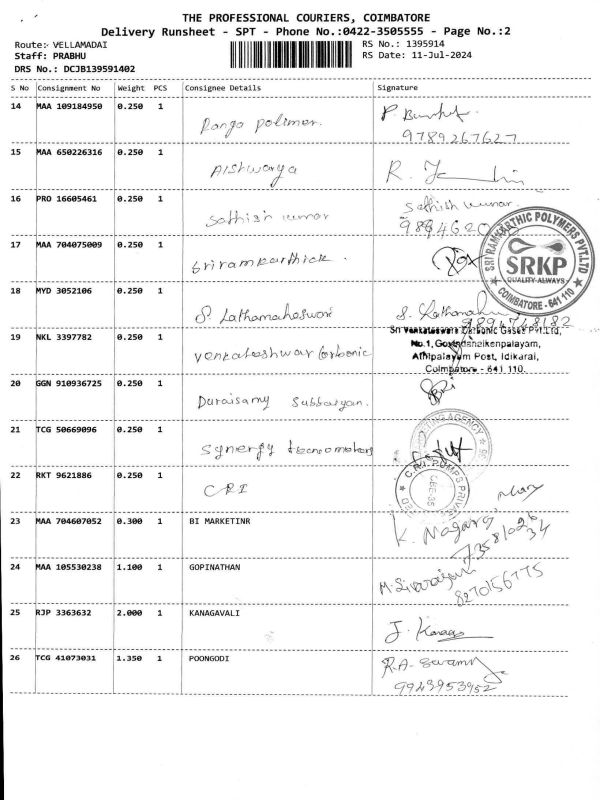 THE PROFESSIONAL COURIERS, COIMBATORE
Delivery Runsheet - SPT - Phone No.:0422-3505555 - Page No.:2
Route:- VELLAMADAI RS No.: 1395914
Staff: PRABHU RS Date: 11-Jul-2024
DRS No.: DCJB139591402
S No Consignment No Weight PCS Consignee Details Signature
14 MAA 109184950 0.250 1 Ranga polimer.
9789267627
15 MAA 650226316 0.250 1 Aishwarya R.
16 PRO 16605461 0.250 1 sathish kumar Sathish kumar.
17 MAA 704075009 0.250 1 Sriramkarthick.
SRI RAMKARTHIC POLYMERS PVT.LTD
SRKP
QUALITY-ALWAYS
COIMBATORE - 641 110
18 MYD 3052106 0.250 1 S Lathamaheswari S. Lathamah
9894748182
19 NKL 3397782 0.250 1 Venkateshwar Corbonic
Sri Venkateswara Carbonic Gases Pvt.Ltd,
No.1, Govindanaikenpalayam,
Athipalayam Post, Idikarai,
Coimbatore - 641 110.
20 GGN 910936725 0.250 1 Duraisamy Subbaiyan.
21 TCG 50669096 0.250 1 Synergy
AGENCY
22 RKT 9621886 0.250 1 CRI
C.R.I. PUMPS PRIVATE
23 MAA 704607052 0.300 1 BI MARKETINR K. Nagara
24 MAA 105530238 1.100 1 GOPINATHAN M. Sivarajan
8270156775
25 RJP 3363632 2.000 1 KANAGAVALI J. Kanaga
26 TCG 41073031 1.350 1 POONGODI R.A. Swamy
9943953952